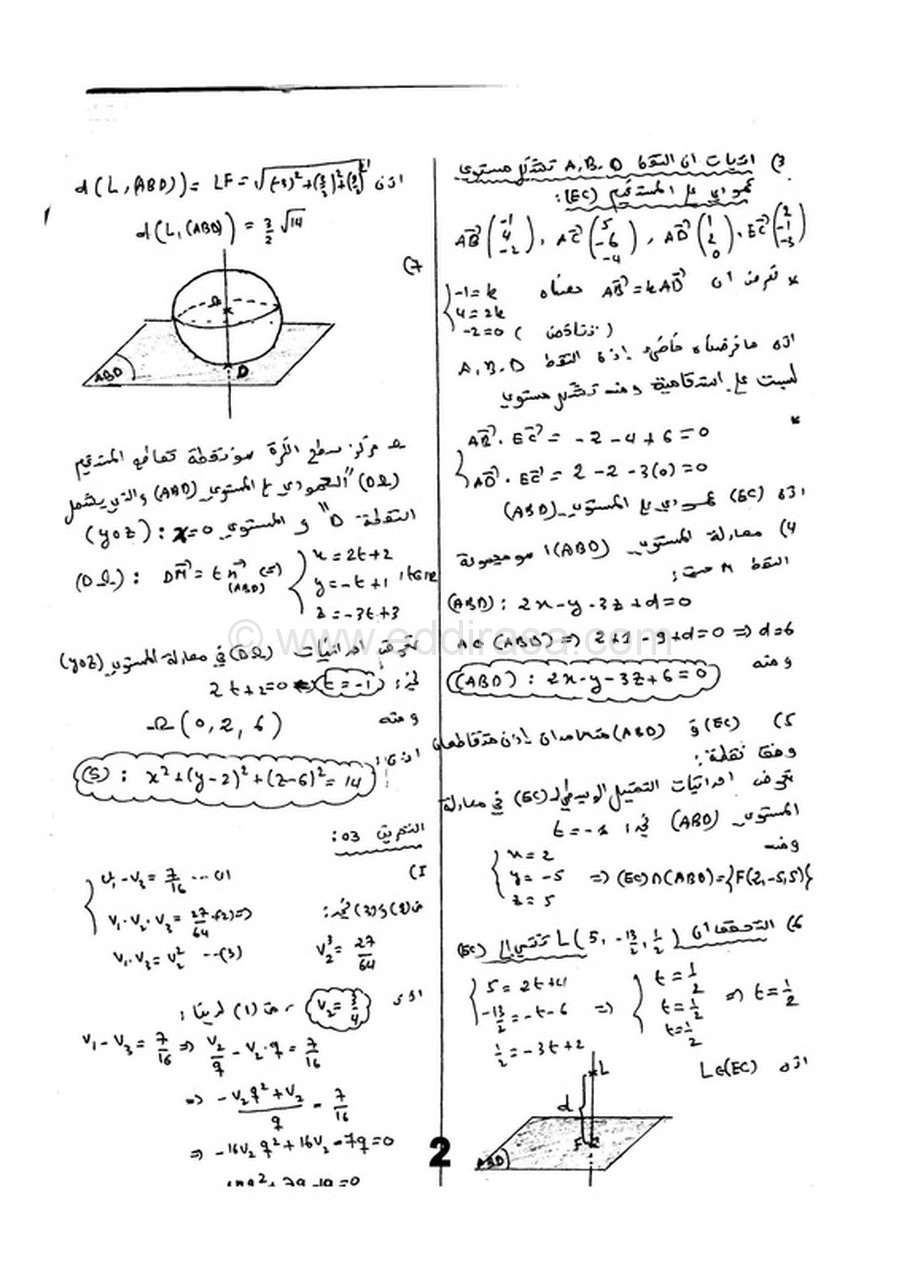 3) اثبات أن النقط A, B, D تشكل مستوي
عمودي على المستقيم (EC):
AB⃗(-1 4 -2), AC⃗(5 -6 -4), AD⃗(1 2 0), EC⃗(2 -1 -3)
* نفرض أن AB⃗ = kAD⃗ معناه
{ -1 = k
4 = 2k
-2 = 0 (تناقض)
اذن ما فرضناه خاطئ إذن النقط A, B, D
ليست على استقامية ومنه تشكل مستوي
*
{ AB⃗ . EC⃗ = -2 - 4 + 6 = 0
AD⃗ . EC⃗ = 2 - 2 - 3(0) = 0
اذن (EC) عمودي على المستوي (ABD)
4) معادلة المستوي (ABD) هو مجموعة
النقط M حيث:
(ABD): 2x - y - 3z + d = 0
A∈(ABD) ⇒ 2+1-9+d=0 ⇒ d=6
ومنه
(ABD): 2x - y - 3z + 6 = 0
5) (EC) و (ABD) متعامدان إذن متقاطعان
وفقا نقطة:
نعوض احداثيات التمثيل الوسيطي لـ (EC) في معادلة
المستوي (ABD) نجد: t = -1
ومنه
{ x = 2
y = -5
z = 5
⇒ (EC)∩(ABD) = {F(2, -5, 5)}
6) التحقق أن L(5, -13/2, 1/2) تنتمي الى (EC)
{ 5 = 2t+4
-13/2 = -t-6
1/2 = -3t+2
⇒ { t = 1/2
t = 1/2
t = 1/2
⇒ t = 1/2
اذن L∈(EC)
L
d
F
ABD
اذن d(L, (ABD)) = LF = √((-3)²+(3/2)²+(9/2)²)
d(L, (ABD)) = 3/2 √14
7)
Ω
D
ABD
Ω مركز سطح الكرة هو نقطة تقاطع المستقيم
(DΩ) "العمودي على المستوي (ABD) والذي يشمل
النقطة D" و المستوي (yoz): x=0
(DΩ): DM⃗ = t n⃗(ABD) ⇔ { x = 2t+2
y = -t+1, t∈ℝ
z = -3t+3
نعوض احداثيات (DΩ) في معادلة المستوي (yoz)
نجد: 2t+2=0 ⇔ t = -1
ومنه Ω(0, 2, 6)
اذن: (S): x²+(y-2)²+(z-6)² = 14
التمرين 03:
I)
{ v₁ - v₃ = 7/16 ...(1)
v₁ . v₂ . v₃ = 27/64 ..(2) ⇒
v₁ . v₃ = v₂² ...(3)
من (2) و (3) نجد:
v₂³ = 27/64
اذن v₂ = 3/4 ومن (1) لدينا:
v₁ - v₃ = 7/16 ⇒ v₂/q - v₂ . q = 7/16
⇒ (-v₂q² + v₂)/q = 7/16
⇒ -16v₂q² + 16v₂ - 7q = 0
2
© www.eddirasa.com